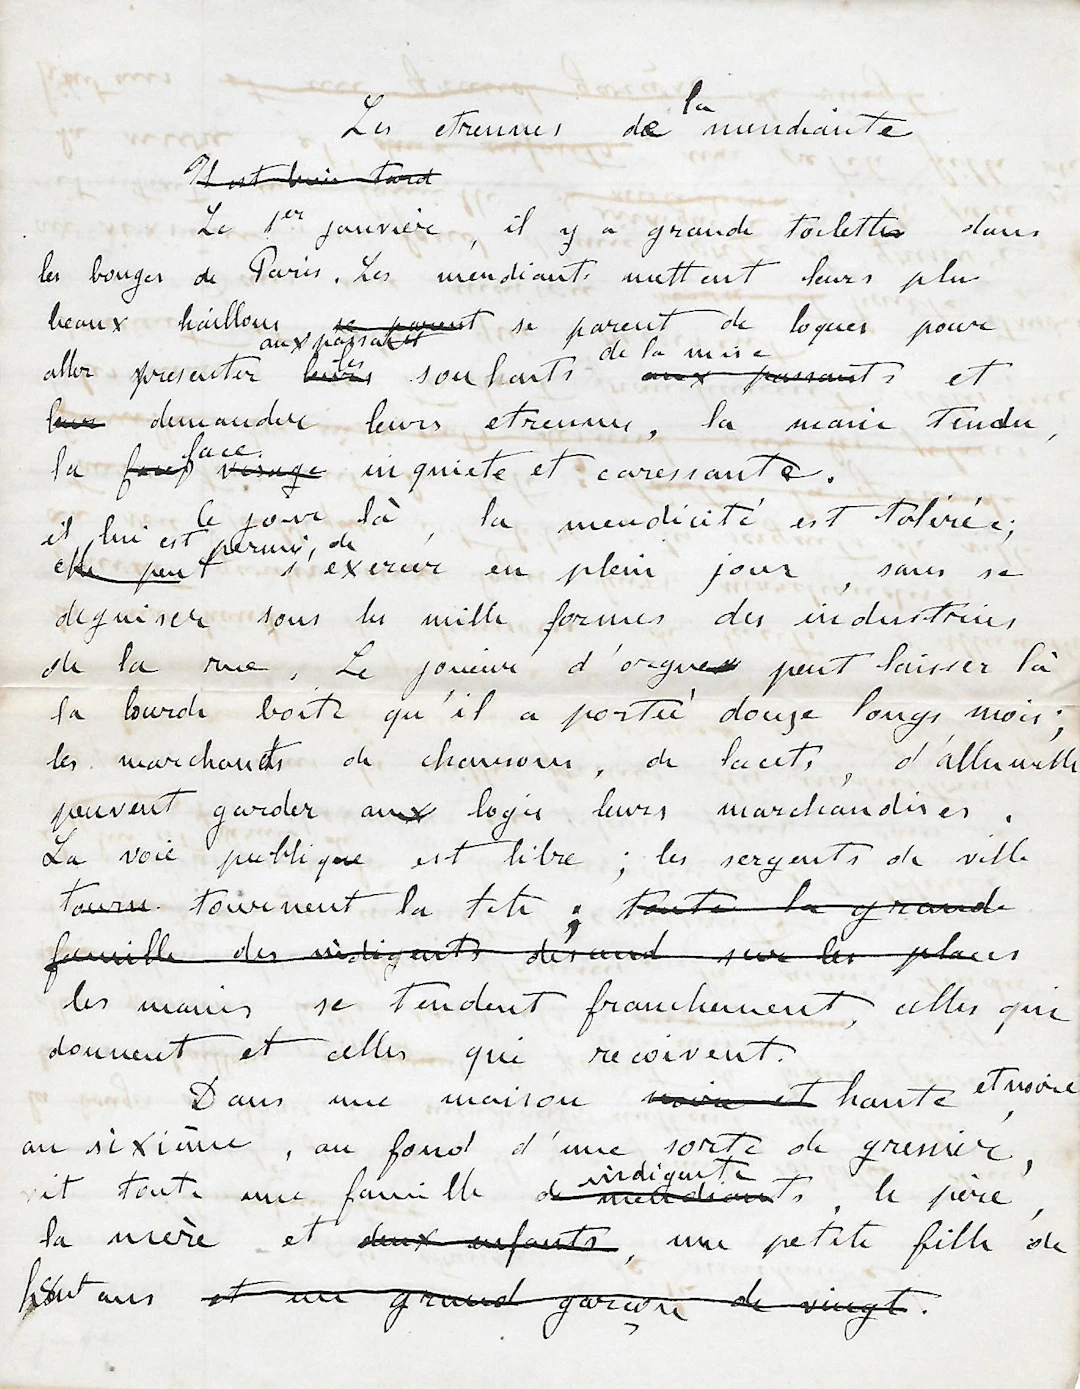 Les etrennes de la mendiante
Il est bien tard
Le 1er janvière, il y a grande toilette dans
les bouges de Paris. Les mendiants mettent leurs plu
beaux haillons, se parent se parent de loques pour
aux passants les de la mise
aller presenter leurs souhaits aux passants et
leur demander leurs etrennes, la main tendue,
face
la face visage inquiete et caressante.
Ce jour là, la mendicité est tolérée;
il lui est permis, de
elle peut s'exercer en plein jour, sans se
deguiser sous les mille formes des industries
de la rue. Le joueur d'orgues peut laisser là
la lourde boite qu'il a porteé douze longs mois;
les marchands de chansons, de lacets, d'allumette
peuvent garder aux logis leurs marchandises.
La voie publique est libre; les sergents de ville
tourn tournent la tete; toute la grande
famille des indigents désend sur les places
les mains se tendent franchement, celles qui
donnent et celles qui recoivent.
Dans une maison noire et haute et noire,
au sixième, au fond d'une sorte de grenier,
indigente
vit toute une famille de mendiants, le père,
la mère et deux enfants, une petite fille de
huit ans et un grand garçon de vingt.